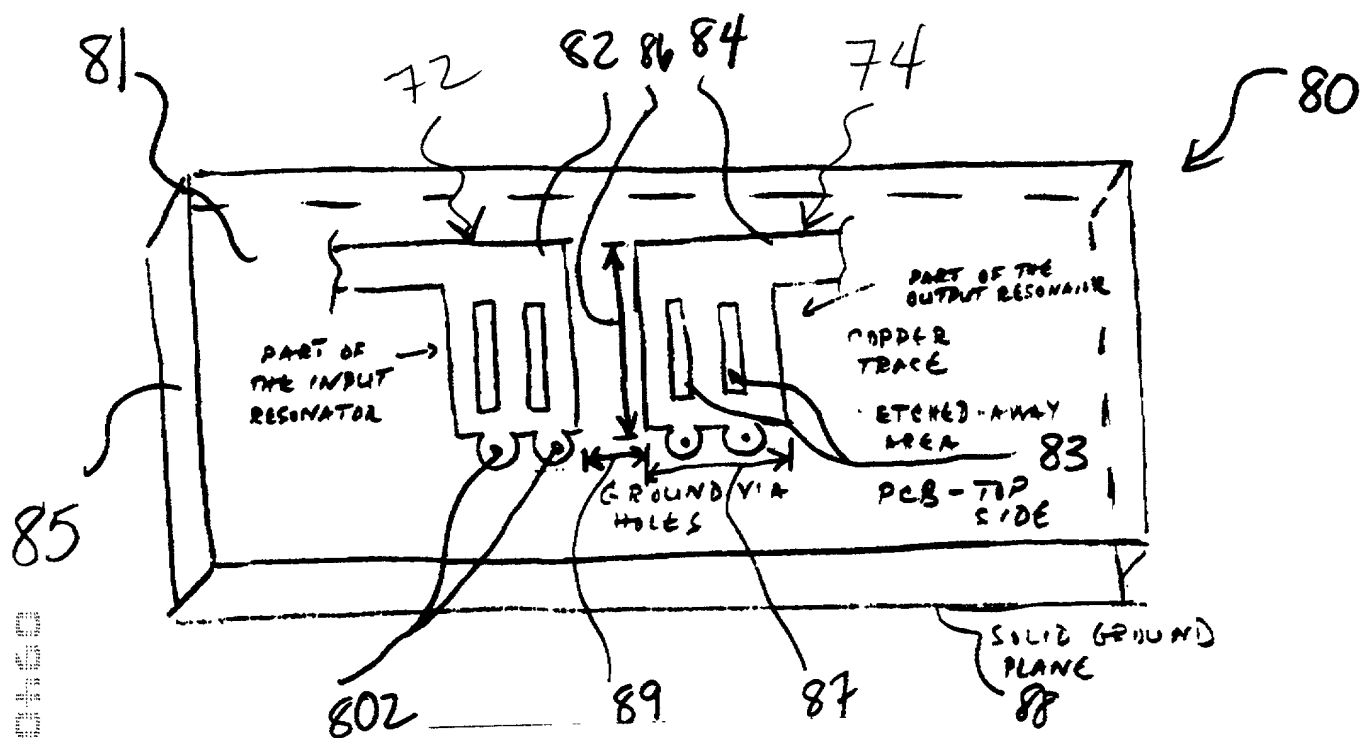 81
72
82 86 84
74
80
PART OF THE
OUTPUT RESONATOR
COPPER
TRACE
PART OF
THE INPUT
RESONATOR
ETCHED-AWAY
AREA
83
GROUND VIA
HOLES
PCB-TOP
SIDE
85
SOLID GROUND
PLANE
802
89
87
88